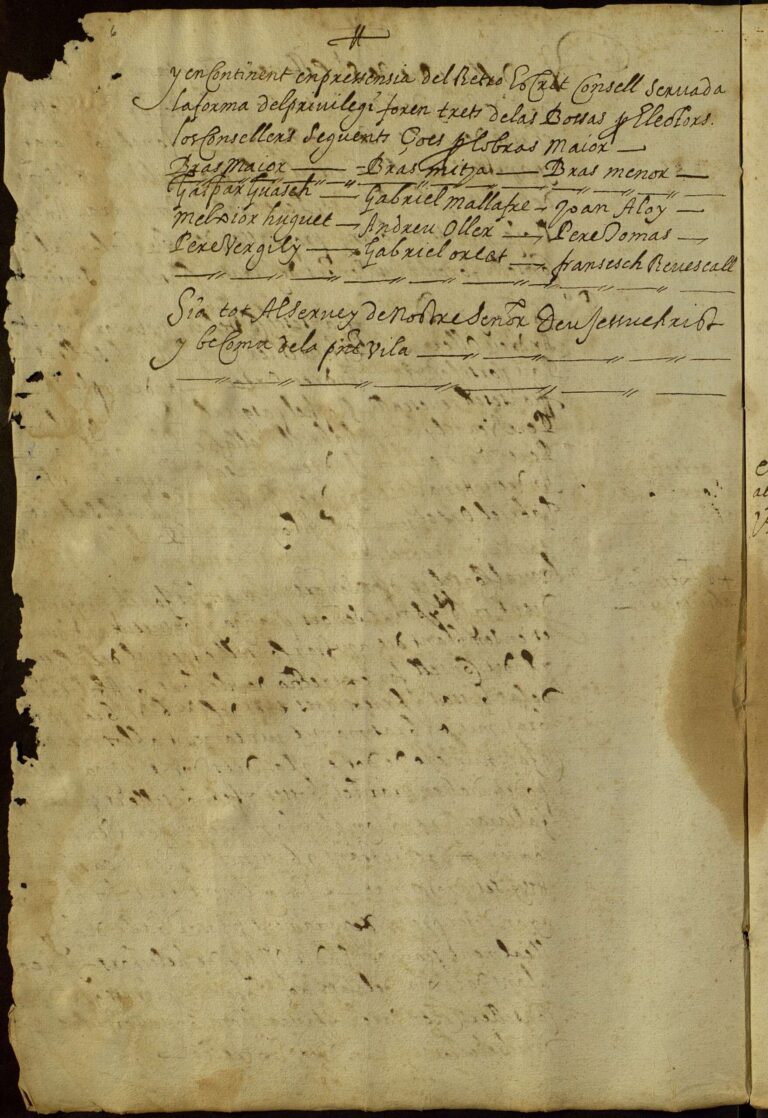 y en Continent en pressensia del Retro Escrit Consell servada
la forma del privilegi foren trets de las Bossas p Electors.
los Consellers seguents ço es p lo bras Maior —
Bras Maior — Bras mitja — Bras menor —
Gaspar Guasch — Gabriel mallafre — Joan Aloy —
Melxior huguet — Andreu Oller — Pere Domas —
Pere Vergily — Gabriel — fransesch Revescall
Sia tot Al Servey de Nostre Senor Deu Jesuchrist
y be Comu de la pnt Vila